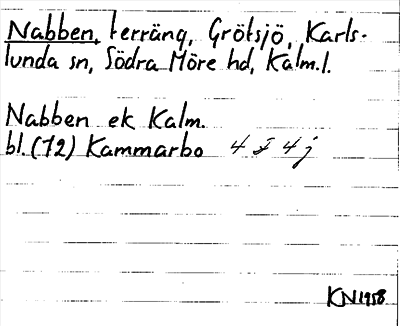 Nabben, terräng, Grötsjö, Karls-
lunda sn, Södra Möre hd, Kalm.l.
Nabben ek Kalm.
bl. (72) Kammarbo 4 F 4 j
KN1958